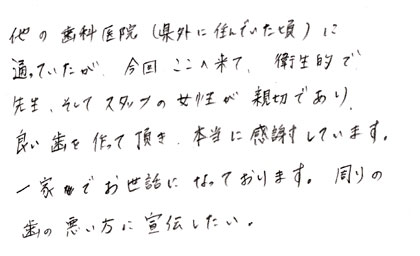 他の歯科医院（県外に住んでいた頃）に
通っていたが、今回ここへ来て、衛生的で
先生、そしてスタッフの女性が親切であり、
良い歯を作って頂き、本当に感謝しています。
一家でお世話になっております。周りの
歯の悪い方に宣伝したい。